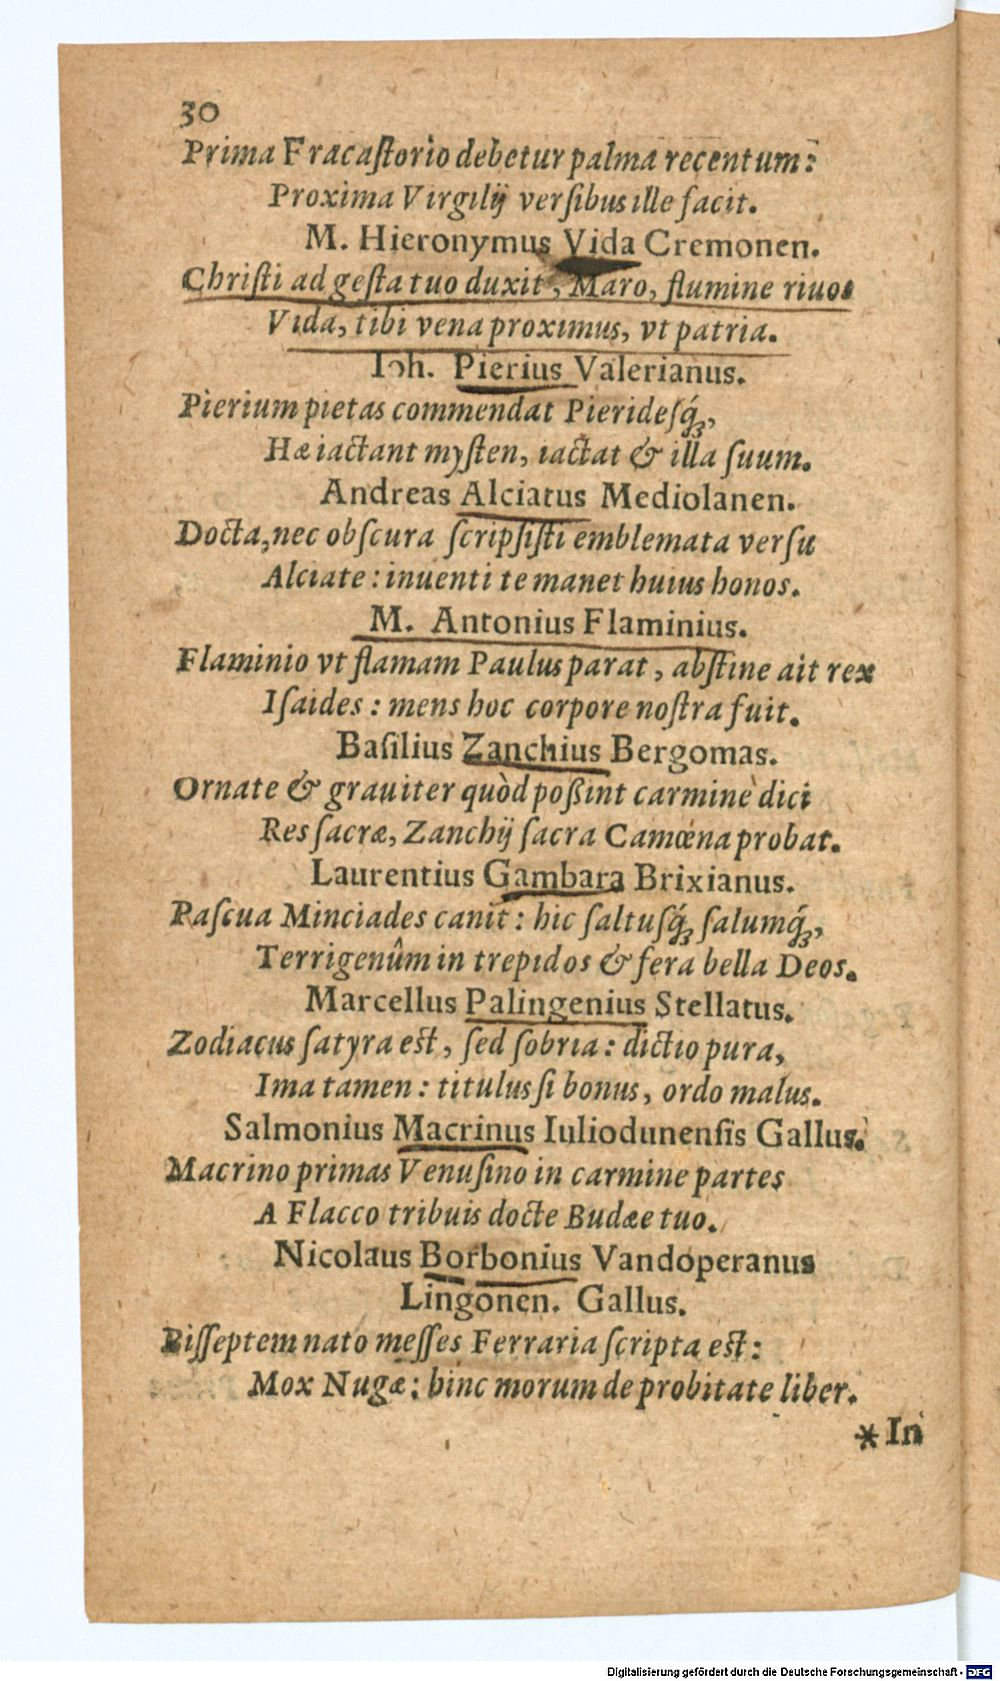 30
Prima Fracaſtorio debetur palma recentum:
Proxima Virgilij verſibus ille facit.
M. Hieronymus Vida Cremonen.
Chriſti ad geſta tuo duxit, Maro, flumine riuos
Vida, tibi vena proximus, vt patria.
Ioh. Pierius Valerianus.
Pierium pietas commendat Pierideſq́;,
Hæ iactant myſten, iactat & illa ſuum.
Andreas Alciatus Mediolanen.
Docta, nec obſcura ſcripſiſti emblemata verſu
Alciate: inuenti te manet huius honos.
M. Antonius Flaminius.
Flaminio vt flamam Paulus parat, abſtine ait rex
Iſaides: mens hoc corpore noſtra fuit.
Baſilius Zanchius Bergomas.
Ornate & grauiter quòd poßint carmine dici
Res ſacræ, Zanchij ſacra Camœna probat.
Laurentius Gambara Brixianus.
Paſcua Minciades canit: hic ſaltuſq́; ſalumq́;,
Terrigenûm in trepidos & fera bella Deos.
Marcellus Palingenius Stellatus.
Zodiacus ſatyra eſt, ſed ſobria: dictio pura,
Ima tamen: titulus ſi bonus, ordo malus.
Salmonius Macrinus Iuliodunenſis Gallus.
Macrino primas Venuſino in carmine partes
A Flacco tribuis docte Budæe tuo.
Nicolaus Borbonius Vandoperanus
Lingonen. Gallus.
Biſſeptem nato meſſes Ferraria ſcripta eſt:
Mox Nugæ: hinc morum de probitate liber.
* In
Digitalisierung gefördert durch die Deutsche Forschungsgemeinschaft - DFG